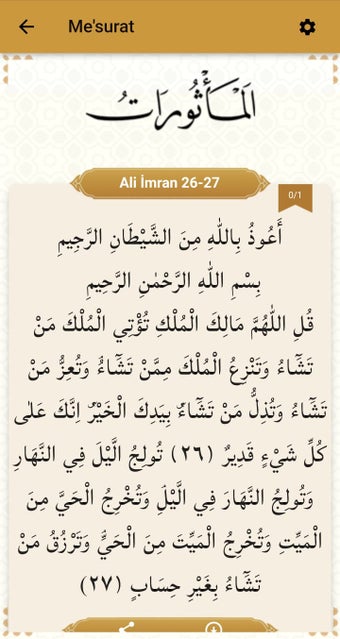 Me'surat
اَلْمَأْثُورَاتُ
Ali İmran 26-27
0/1
أَعُوذُ بِاللّٰهِ مِنَ الشَّيْطَانِ الرَّجِيمِ
بِسْمِ اللّٰهِ الرَّحْمٰنِ الرَّحِيمِ
قُلِ اللّٰهُمَّ مَالِكَ الْمُلْكِ تُؤْتِي الْمُلْكَ مَنْ
تَشَٓاءُ وَتَنْزِعُ الْمُلْكَ مِمَّنْ تَشَٓاءُ وَتُعِزُّ مَنْ
تَشَٓاءُ وَتُذِلُّ مَنْ تَشَٓاءُۜ بِيَدِكَ الْخَيْرُۜ اِنَّكَ عَلٰى
كُلِّ شَيْءٍ قَدِيرٌ ﴿٢٦﴾ تُولِجُ الَّيْلَ فِي النَّهَارِ
وَتُولِجُ النَّهَارَ فِي الَّيْلِۘ وَتُخْرِجُ الْحَيَّ مِنَ
الْمَيِّتِ وَتُخْرِجُ الْمَيِّتَ مِنَ الْحَيِّۘ وَتَرْزُقُ مَنْ
تَشَٓاءُ بِغَيْرِ حِسَابٍ ﴿٢٧﴾